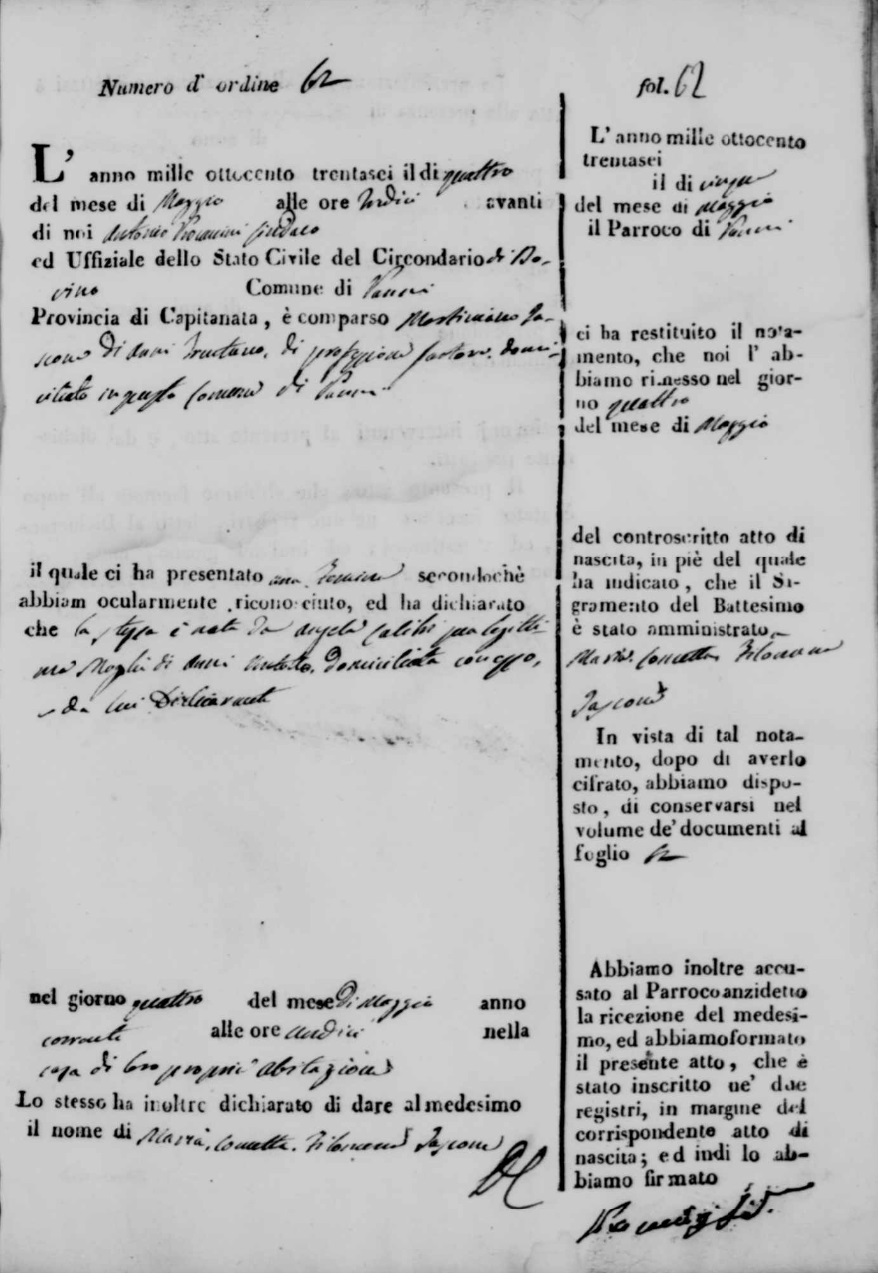 Numero d' ordine 62
L' anno mille ottocento trentasei il di quattro
del mese di Maggio alle ore undici avanti
di noi Antonio Sindaco
ed Uffiziale dello Stato Civile del Circondario di Bo-
vino Comune di Panni
Provincia di Capitanata, è comparso
di anni di professione domi-
ciliato in questo Comune di Panni
il quale ci ha presentato una secondochè
abbiam ocularmente riconosciuto, ed ha dichiarato
che la stessa è nata da Angela sua legitti-
ma Moglie di anni domiciliata con esso,
e da lui Dichiarante
nel giorno quattro del mese di Maggio anno
corrente alle ore undici nella
casa di loro propria abitazione
Lo stesso ha inoltre dichiarato di dare al medesimo
il nome di Maria, Concetta, Filomena
fol. 62
L' anno mille ottocento
trentasei
il di cinque
del mese di Maggio
il Parroco di Panni
ci ha restituito il nota-
mento, che noi l' ab-
biamo rimesso nel gior-
no quattro
del mese di Maggio
del controscritto atto di
nascita, in piè del quale
ha indicato, che il Sa-
gramento del Battesimo
è stato amministrato a
Maria Concetta Filomena
In vista di tal nota-
mento, dopo di averlo
cifrato, abbiamo dispo-
sto, di conservarsi nel
volume de' documenti al
foglio 62
Abbiamo inoltre accu-
sato al Parroco anzidetto
la ricezione del medesi-
mo, ed abbiamo formato
il presente atto, che è
stato inscritto ne' due
registri, in margine del
corrispondente atto di
nascita; ed indi lo ab-
biamo firmato